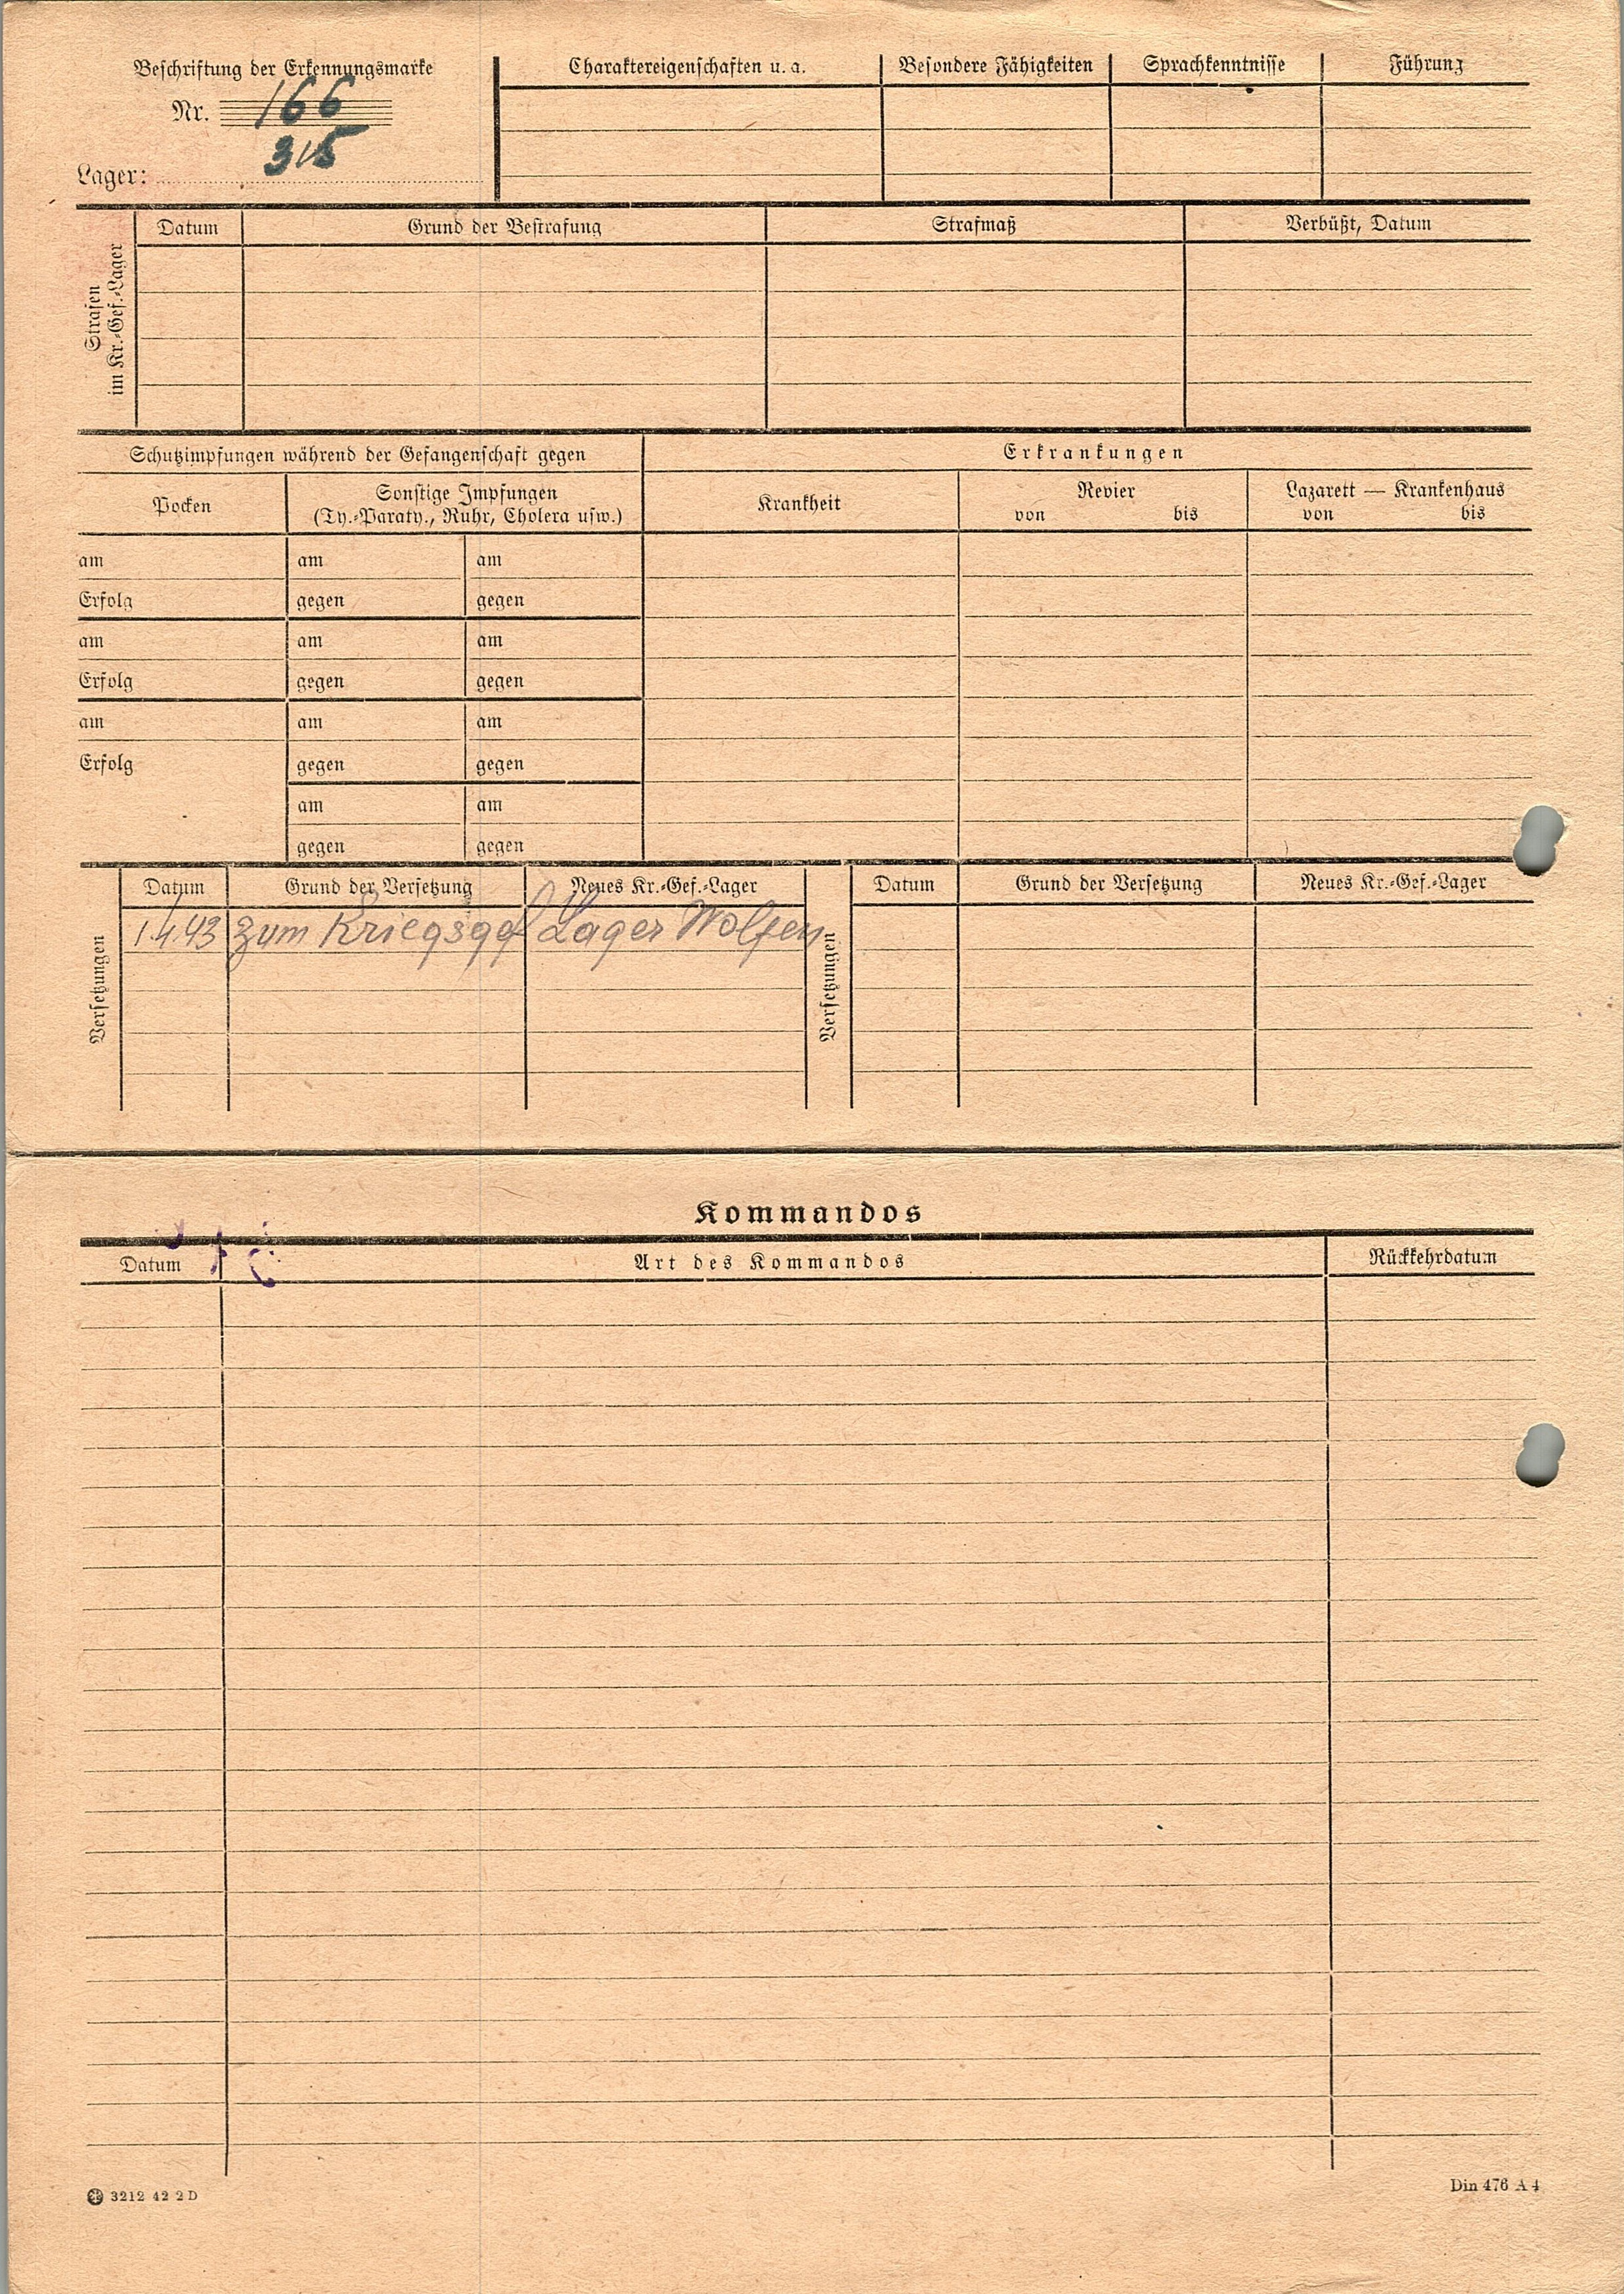 Beschriftung der Erkennungsmarke
Nr. 166
315
Lager:
Charaktereigenschaften u. a.
Besondere Fähigkeiten
Sprachkenntnisse
Führung
Strafen
im Kr.-Gef.-Lager
Datum
Grund der Bestrafung
Strafmaß
Verbüßt, Datum
Schutzimpfungen während der Gefangenschaft gegen
Erkrankungen
Pocken
Sonstige Impfungen
(Ty.-Paraty., Ruhr, Cholera usw.)
Krankheit
Revier
von bis
Lazarett — Krankenhaus
von bis
am am am
Erfolg gegen gegen
am am am
Erfolg gegen gegen
am am am
Erfolg gegen gegen
am am
gegen gegen
Versetzungen
Datum Grund der Versetzung Neues Kr.-Gef.-Lager
1.4.43 zum Kriegsgef Lager Wolfen
Versetzungen
Datum Grund der Versetzung Neues Kr.-Gef.-Lager
Kommandos
Datum Art des Kommandos Rückkehrdatum
3212 42 2 D
Din 476 A 4